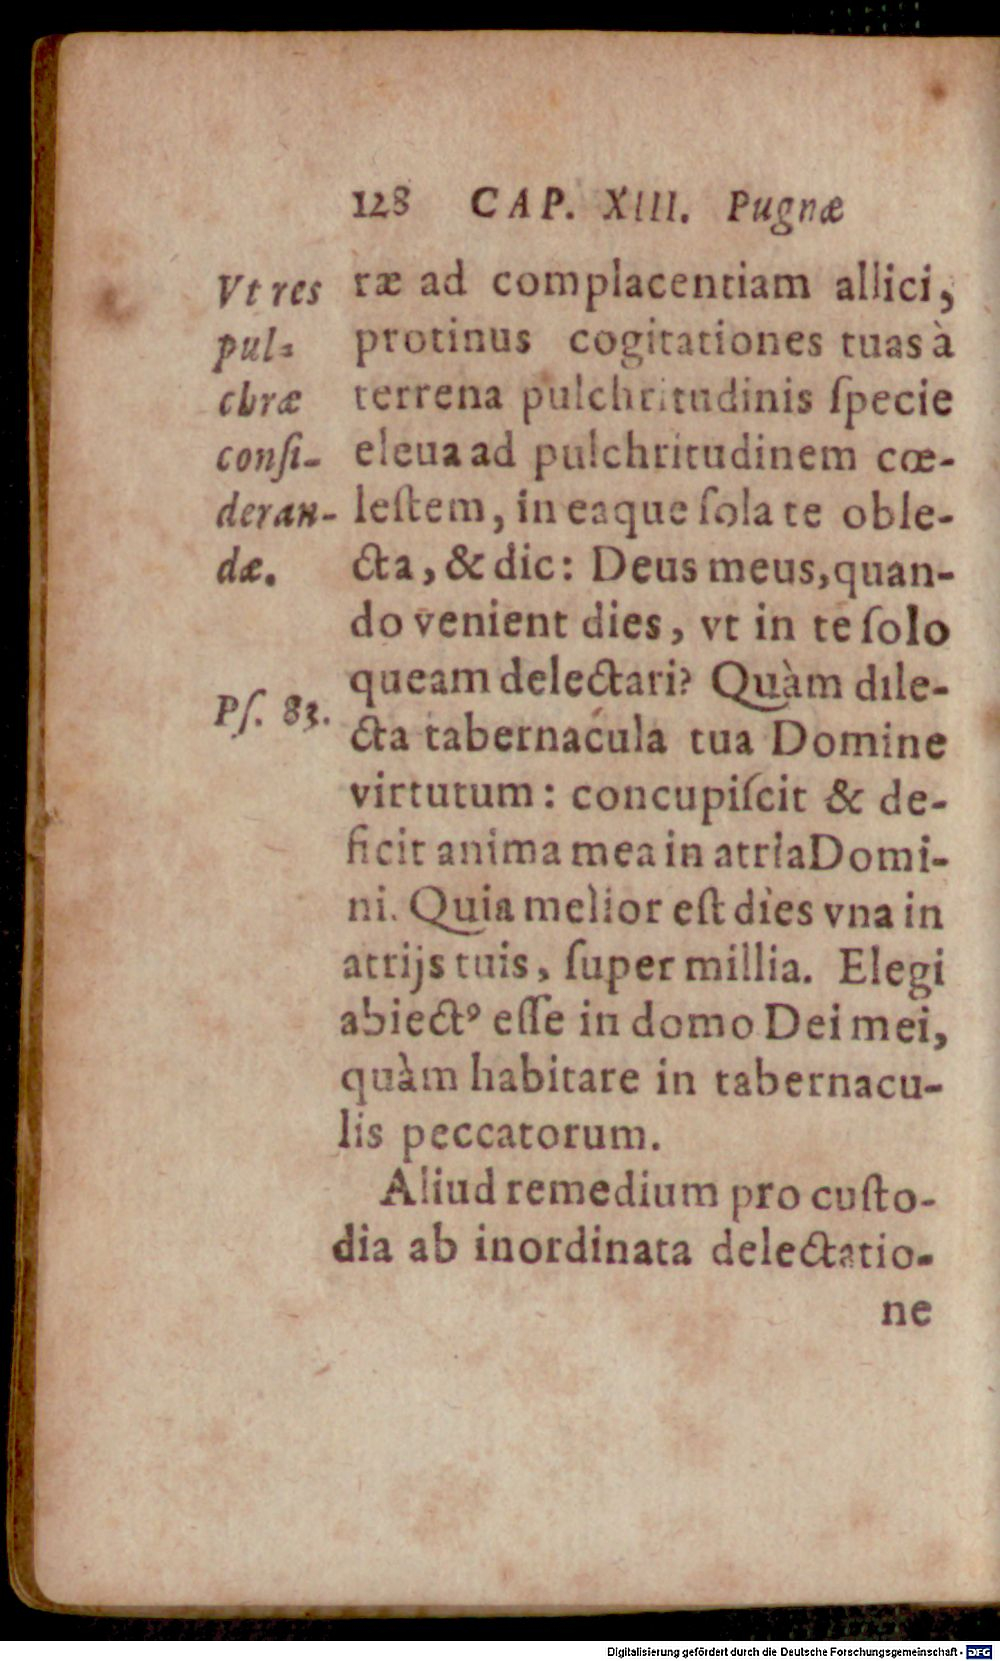 128 CAP. XIII. Pugnæ
Vt res
pul-
chræ
consi-
deran-
dæ.
Ps. 83.
ræ ad complacentiam allici,
protinus cogitationes tuas à
terrena pulchritudinis ſpecie
eleua ad pulchritudinem cœ-
leſtem, in eaque ſola te oble-
cta, & dic: Deus meus, quan-
do venient dies, vt in te ſolo
queam delectari? Quàm dile-
cta tabernacula tua Domine
virtutum: concupiſcit & de-
ficit anima mea in atria Domi-
ni. Quia melior eſt dies vna in
atrijs tuis, ſuper millia. Elegi
abiectꝰ eſſe in domo Dei mei,
quàm habitare in tabernacu-
lis peccatorum.
Aliud remedium pro cuſto-
dia ab inordinata delectatio-
ne
Digitalisierung gefördert durch die Deutsche Forschungsgemeinschaft - DFG